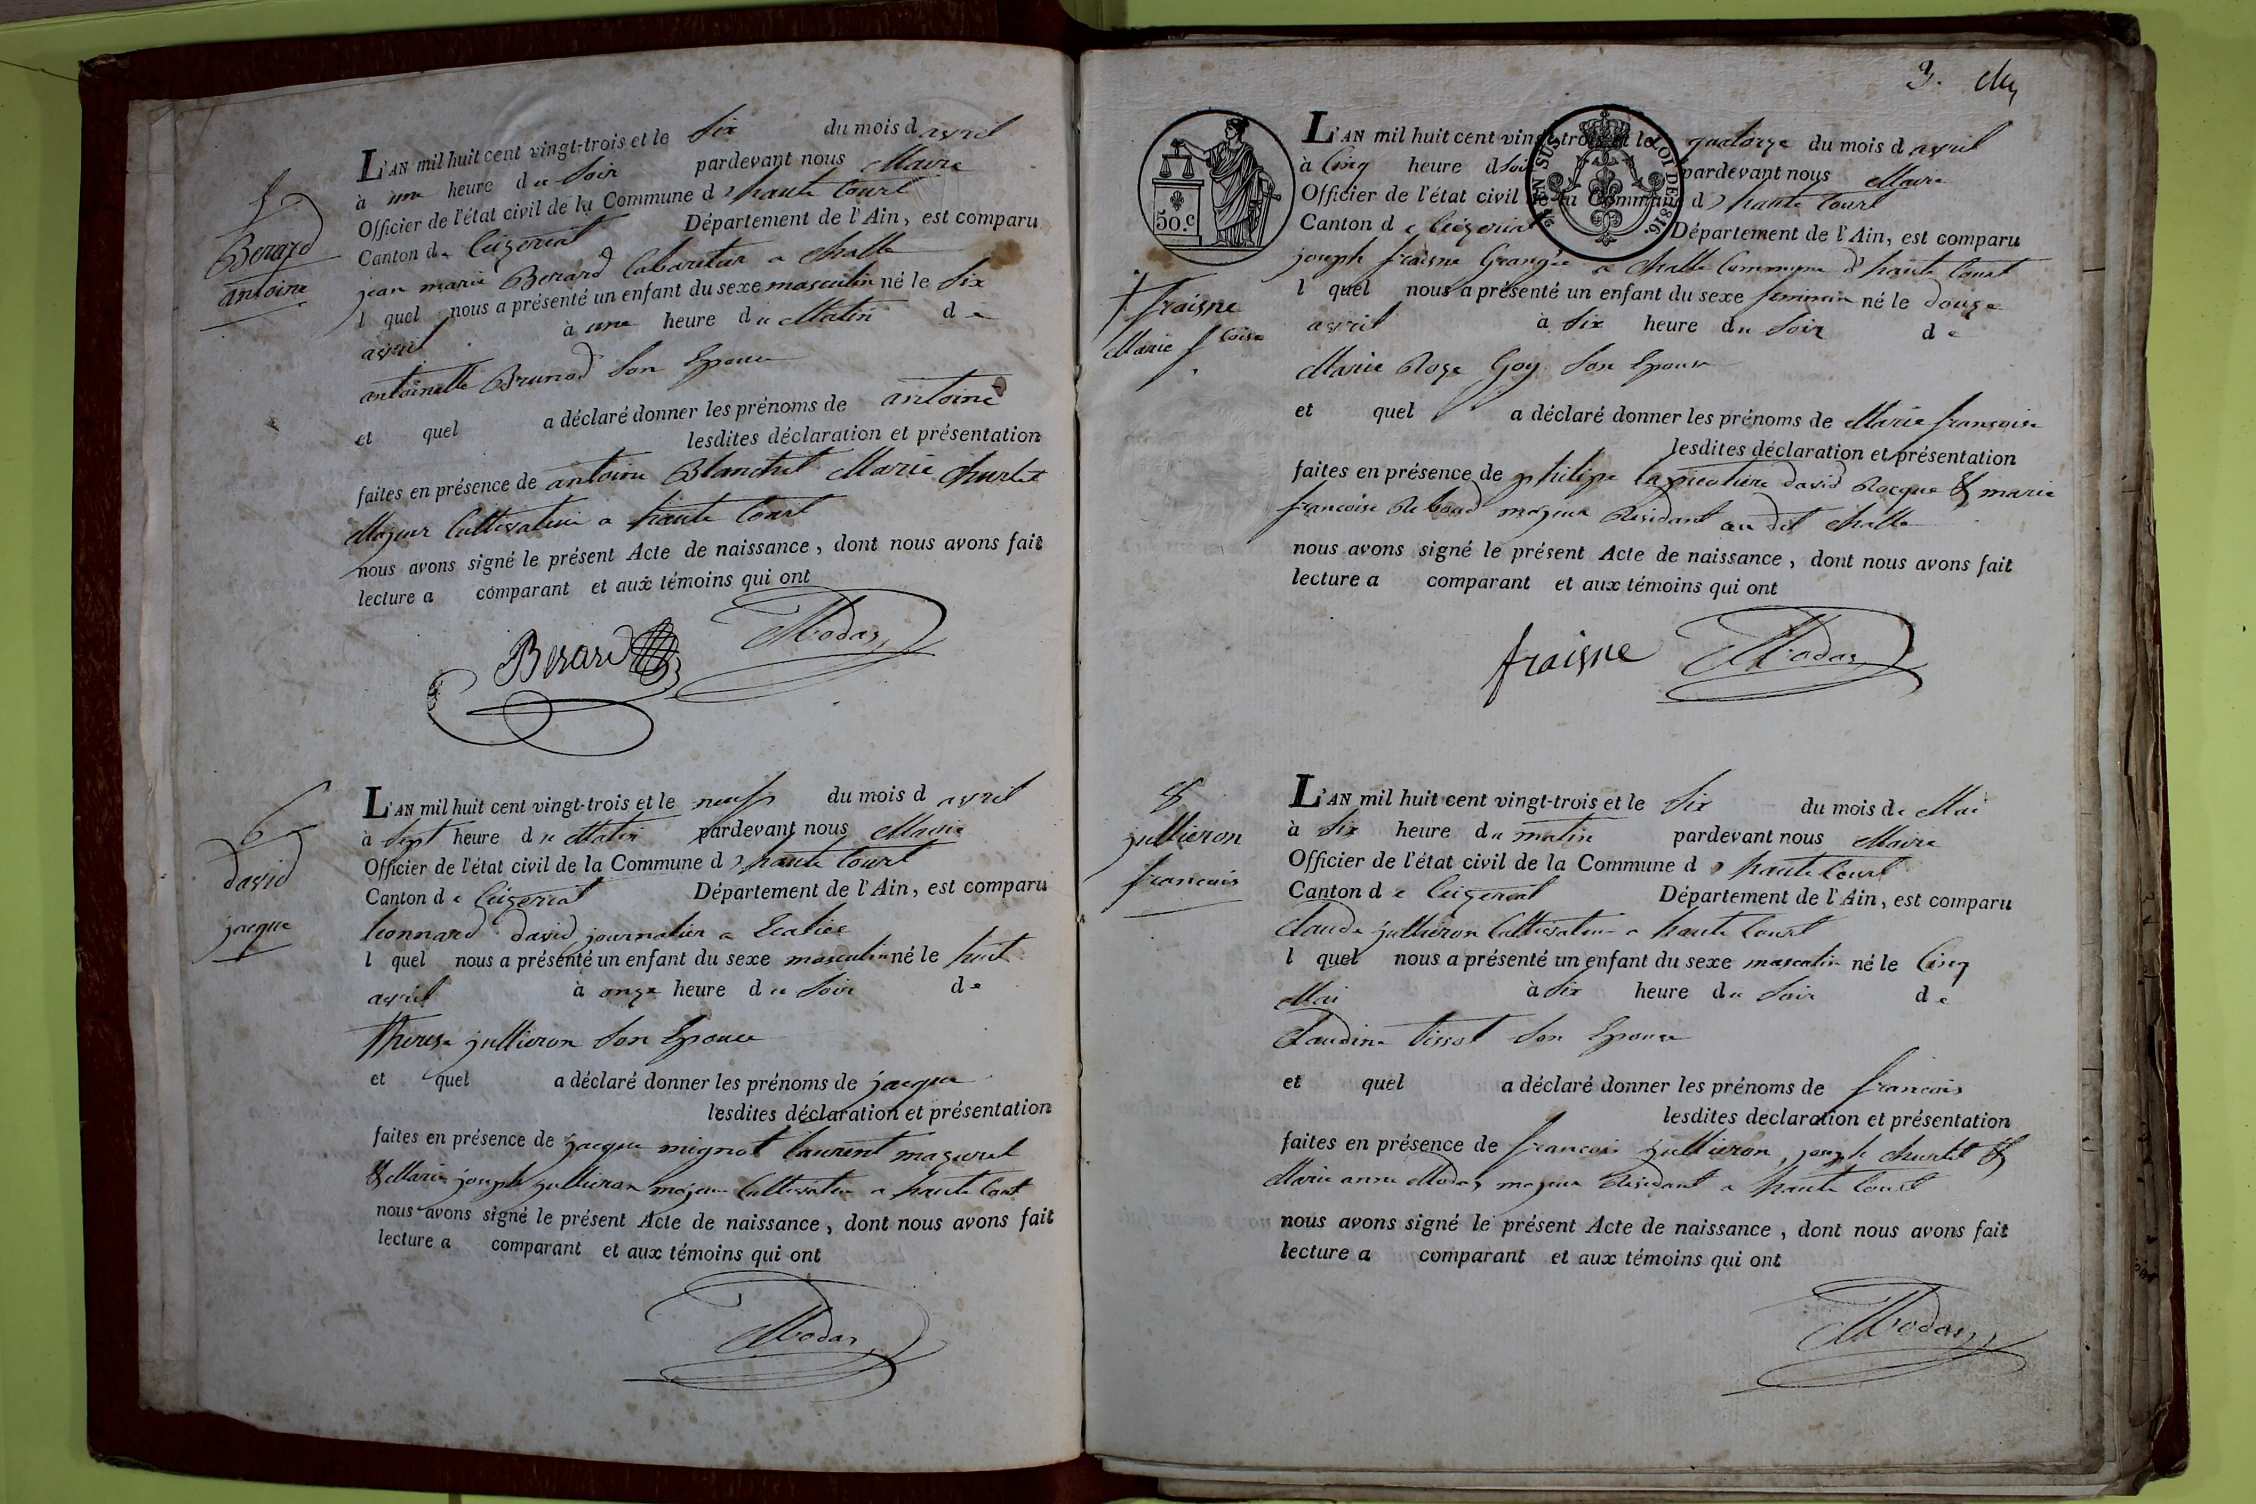 5
Berard
antoine
L'AN mil huit cent vingt-trois et le Six du mois d avril
à une heure du Soir pardevant nous Maire
Officier de l'état civil de la Commune d'haute Court
Canton de Ceizeriat Département de l'Ain, est comparu
jean marie Berard Cabaretier a Challe
l quel nous a présenté un enfant du sexe masculin né le Six
avril à une heure du Matin de
antoinette Brunod Son Epouse
et quel a déclaré donner les prénoms de antoine
lesdites déclaration et présentation
faites en présence de antoine Blanchet Marie Churlet
Majeur Cultivateur a haute Court
nous avons signé le présent Acte de naissance, dont nous avons fait
lecture a comparant et aux témoins qui ont
Berard Modas
6
david
jacque
L'AN mil huit cent vingt-trois et le neuf du mois d avril
à Sept heure du Matin pardevant nous Maire
Officier de l'état civil de la Commune d'haute Court
Canton de Ceizeriat Département de l'Ain, est comparu
leonnard david journalier a
l quel nous a présenté un enfant du sexe masculin né le huit
avril à onze heure du Soir de
Therese jullieron Son Epouse
et quel a déclaré donner les prénoms de jacque
lesdites déclaration et présentation
faites en présence de jacque mignot laurent mazuret
& Marie joseph jullieron majeur Cultivateur a haute Court
nous avons signé le présent Acte de naissance, dont nous avons fait
lecture a comparant et aux témoins qui ont
Modas
3.
50.c
EN SUS
LOI DE 1816
7
fraisne
Marie fcoise
L'AN mil huit cent vingt-trois et le quatorze du mois d avril
à Cinq heure d Soir pardevant nous Maire
Officier de l'état civil de la Commune d'haute Court
Canton de Ceizeriat Département de l'Ain, est comparu
joseph fraisne Grangée a Challe Commune d'haute Court
l quel nous a présenté un enfant du sexe feminin né le douze
avril à Six heure du Soir de
Marie Roze Goy Son Epouse
et quel a déclaré donner les prénoms de Marie francoise
lesdites déclaration et présentation
faites en présence de philipe david Rocque & marie
francoise Reboud majeur Residant au dit Challe
nous avons signé le présent Acte de naissance, dont nous avons fait
lecture a comparant et aux témoins qui ont
fraisne Modas
8
jullieron
francois
L'AN mil huit cent vingt-trois et le Six du mois de Mai
à Six heure du matin pardevant nous Maire
Officier de l'état civil de la Commune d'haute Court
Canton de Ceizeriat Département de l'Ain, est comparu
Claude jullieron Cultivateur a haute Court
l quel nous a présenté un enfant du sexe masculin né le Cinq
Mai à Six heure du Soir de
Claudine tissot Son Epouse
et quel a déclaré donner les prénoms de francois
lesdites declaration et présentation
faites en présence de francois jullieron, joseph churlet &
Marie anne Modas majeur Residant a haute Court
nous avons signé le présent Acte de naissance, dont nous avons fait
lecture a comparant et aux témoins qui ont
Modas